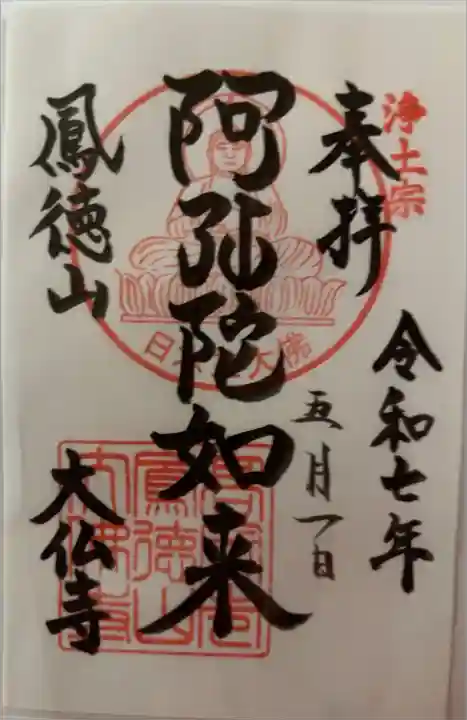 浄土宗
奉拝
令和七年
五月一日
阿弥陀如来
鳳徳山
大仏寺
日本三大佛
鳳徳山